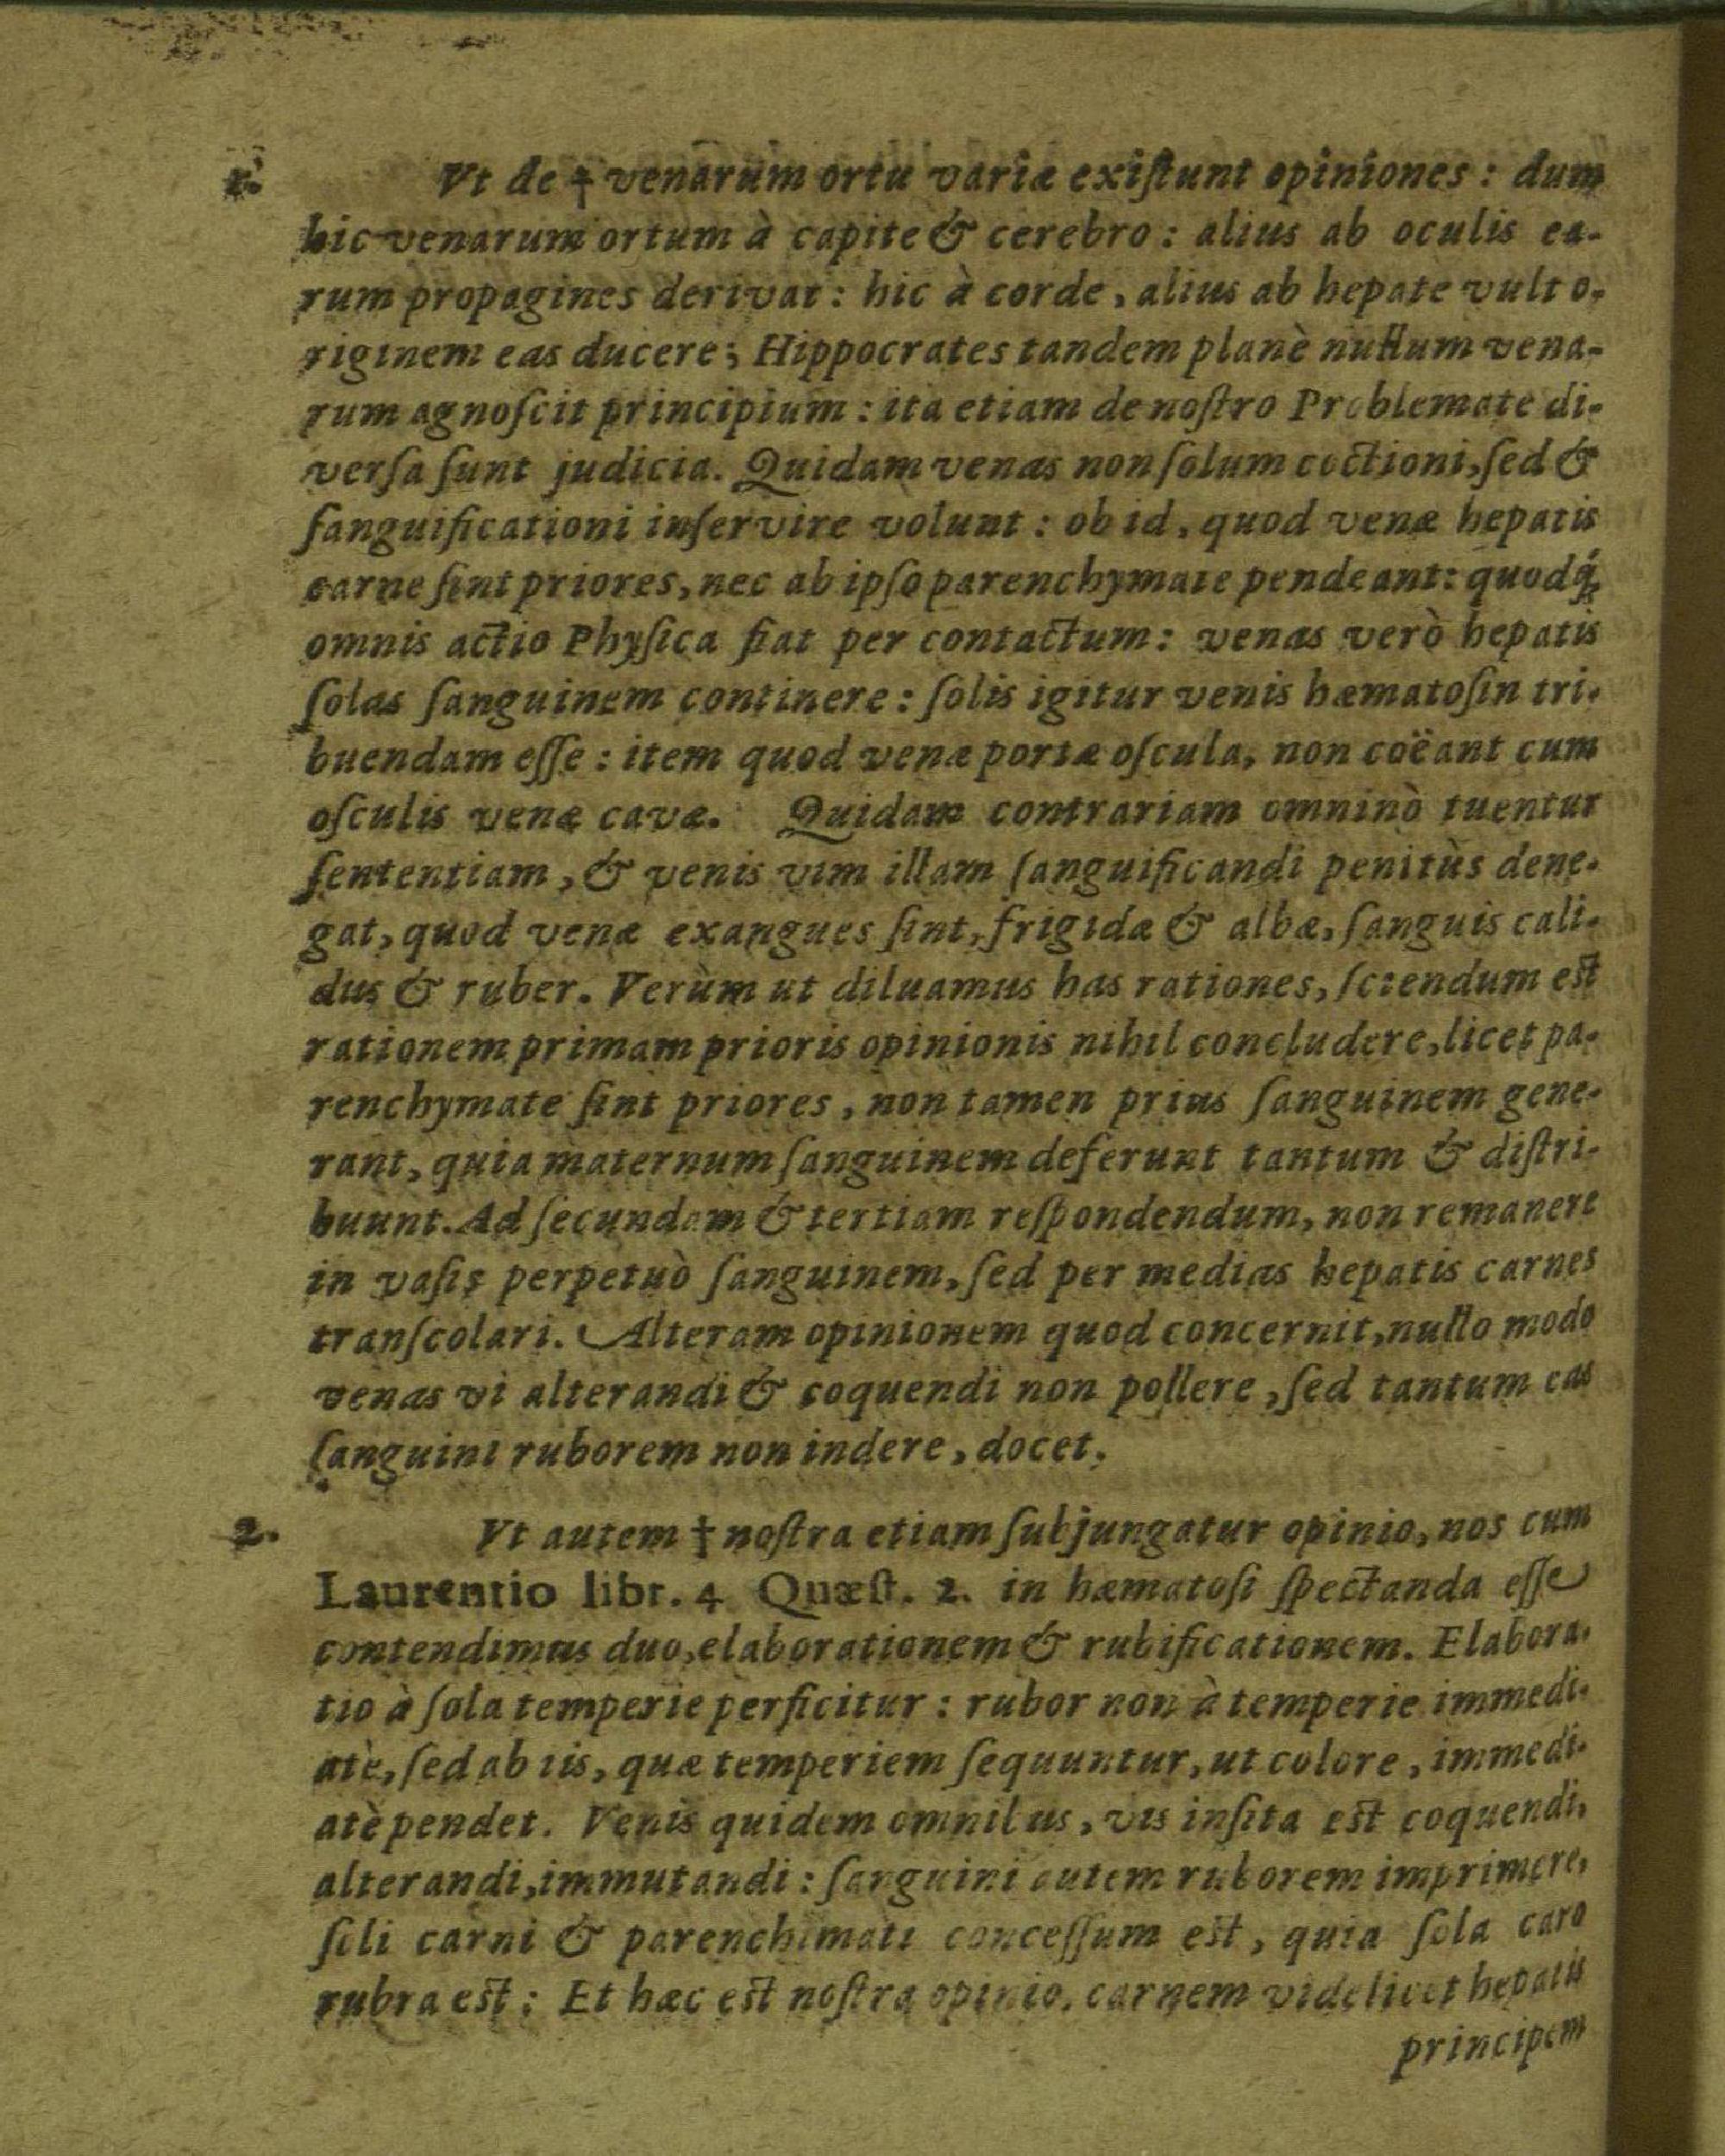 1. Vt de † venarum ortu variæ exiſtunt opiniones: dum
hic venarum ortum à capite & cerebro: alius ab oculis ea-
rum propagines derivat: hic à corde, alius ab hepate vult o-
riginem eas ducere; Hippocrates tandem planè nullum vena-
rum agnoſcit principium: ita etiam de noſtro Problemate di-
verſa ſunt judicia. Quidam venas non ſolum coctioni, ſed &
ſanguificationi inſervire volunt: ob id, quod venæ hepatis
carne ſint priores, nec ab ipſo parenchymate pendeant: quodq́;
omnis actio Phyſica fiat per contactum: venas verò hepatis
ſolas ſanguinem continere: ſolis igitur venis hæmatoſin tri-
buendam eſſe: item quod venæ portæ oſcula, non coëant cum
oſculis venæ cavæ. Quidam contrariam omninò tuentur
ſententiam, & venis vim illam ſanguificandi penitùs dene-
gat, quod venæ exangues ſint, frigidæ & albæ, ſanguis cali-
dus & ruber. Verùm ut diluamus has rationes, ſciendum eſt
rationem primam prioris opinionis nihil concludere, licet pa-
renchymate ſint priores, non tamen prius ſanguinem gene-
rant, quia maternum ſanguinem deferunt tantum & diſtri-
buunt. Ad ſecundam & tertiam reſpondendum, non remanere
in vaſis perpetuò ſanguinem, ſed per medias hepatis carnes
tranſcolari. Alteram opinionem quod concernit, nullo modo
venas vi alterandi & coquendi non pollere, ſed tantum eas
ſanguini ruborem non indere, docet.
2. Vt autem † noſtra etiam ſubjungatur opinio, nos cum
Laurentio libr. 4 Quæſt. 2. in hæmatoſi ſpectanda eſſe
contendimus duo, elaborationem & rubificationem. Elabora-
tio à ſola temperie perficitur: rubor non à temperie immedi-
atè, ſed ab iis, quæ temperiem ſequuntur, ut colore, immedi-
atè pendet. Venis quidem omnibus, vis inſita eſt coquendi,
alterandi, immutandi: ſanguini autem ruborem imprimere,
ſoli carni & parenchimati conceſſum eſt, quia ſola caro
rubra eſt: Et hæc eſt noſtra opinio, carnem videlicet hepatis
principem